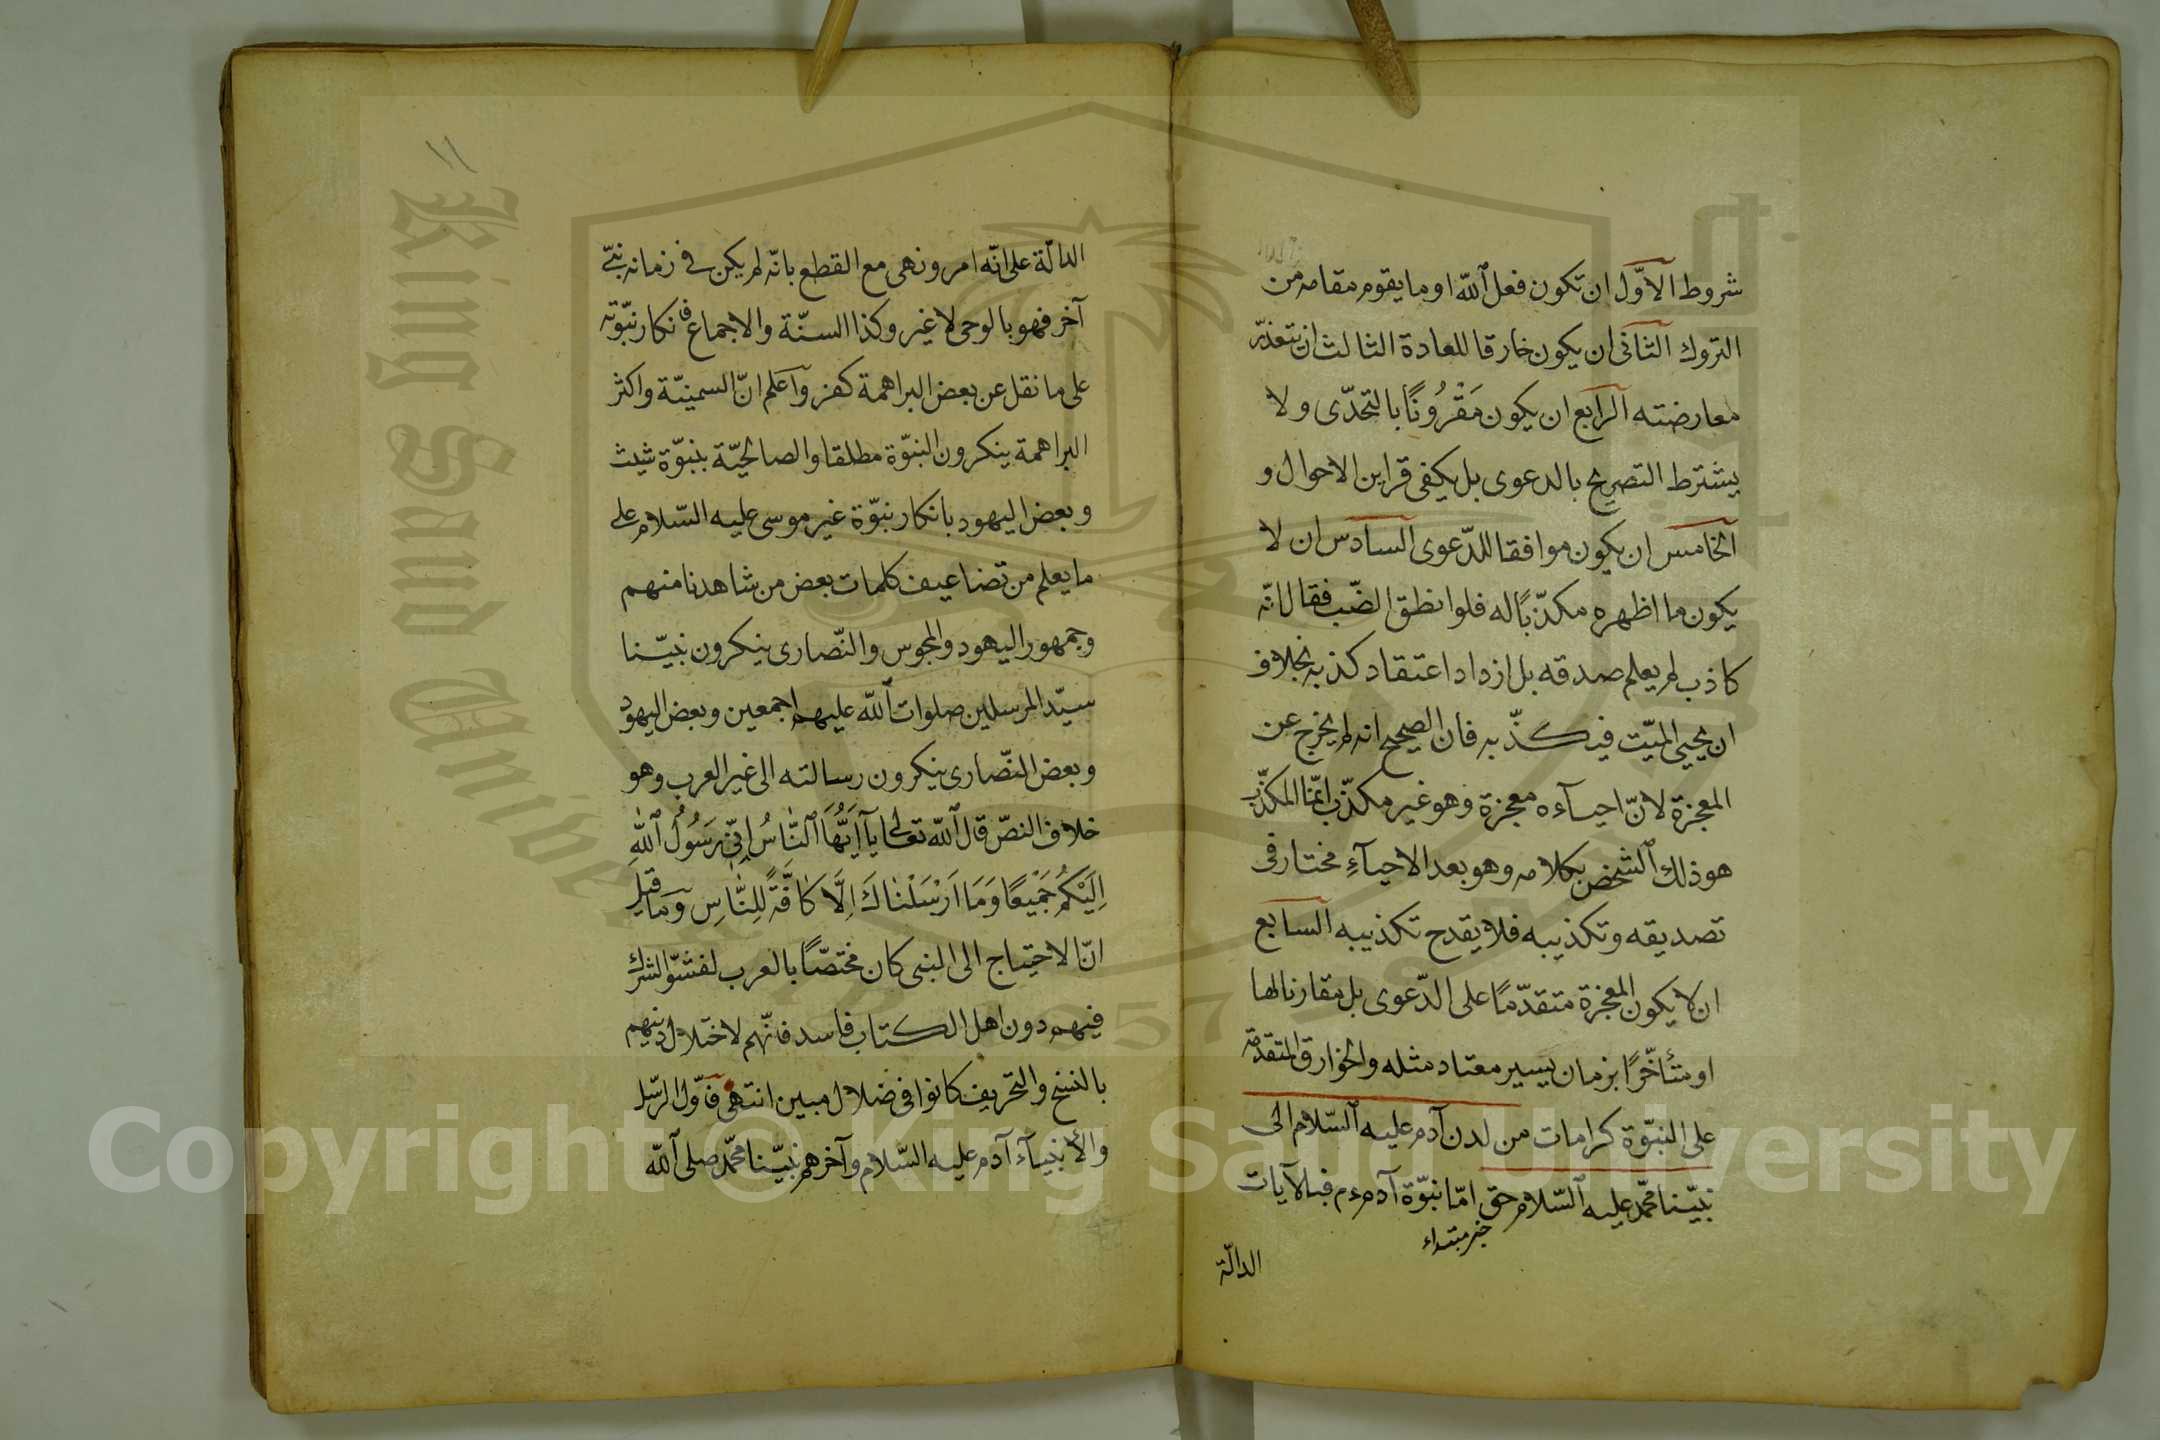 شروط الاوّل ان تكون فعل اللّه او ما يقوم مقامه من
التروك الثانى ان يكون خارقا للعادة الثالث ان يتعذّر
معارضته الرابع ان يكون مَقْرُونًا بالتحدّى ولا
يشترط التصريح بالدعوى بل يكفى قراين الاحوال و
الخامس ان يكون موافقا للدّعوى السادس ان لا
يكون ما اظهره مكذّبًا له فلو انطق الضّب فقال انّه
كاذب لم يعلم صدقه بل ازداد اعتقاد كذبه بخلاف
ان يحيي الميّت فيكذّبه فان الصحيح انه لم يخرج عن
المعجزة لانّ احيآءه معجزة وهو غير مكذّب انّما المكذّب
هو ذلك الشخص بكلامه وهو بعد الاحيآءِ مختار فى
تصديقه وتكذيبه فلا يقدح تكذيبه السابع
ان لا يكون المعجزة متقدّمًا على الدّعوى بل مقارنا لها
او متأخّرًا بزمان يسير معتاد مثله والخوارق المتقدّمة
على النبوّة كرامات من لدن آدم عليه السّلام الى
نبيّنا محمّد عليه السّلام حق امّا نبوّة آدم ءم فبالآيات
خبر مبتداء
الدالّة
١١
الدالّة على انّه امر ونهى مع القطع بانّه لم يكن فى زمانه نبىّ
آخر فهو بالوحى لا غير وكذا السنّة والاجماع فانكار نبوّته
على ما نقل عن بعض البراهمة كفر واعلم انّ السمنيّة واكثر
البراهمة ينكرون النبوّة مطلقا والصالحيّة بنبوّة شيث
وبعض اليهود بانكار نبوّة غير موسى عليه السّلام على
ما يعلم من تضاعيف كلمات بعض من شاهدنا منهم
وجمهور اليهود والمجوس والنّصارى ينكرون نبيّنا
سيّد المرسلين صلوات اللّه عليهم اجمعين وبعض اليهود
وبعض النّصارى ينكرون رسالته الى غير العرب وهو
خلاف النصّ قال اللّه تعالى يآ اَيُّهَا النَّاسُ اِنِّى رَسُولُ اللّٰهِ
اِلَيْكُمْ جَمِيعًا وَمَا اَرْسَلْنَاكَ اِلَّا كَافَّةً لِلنَّاسِ وما قيل
انّ الاحتياج الى النبى كان مختصّا بالعرب لفشوّ الشرك
فيهم دون اهل الكتاب فاسد فانّهم لاختلال دينهم
بالنسخ والتحريف كانوا فى ضلال مبين انتهى فاوّل الرّسل
والأنبيآء آدم عليه السّلام وآخرهم نبيّنا محمّد صلى اللّه
King Saud University
1957
Copyright © King Saud University